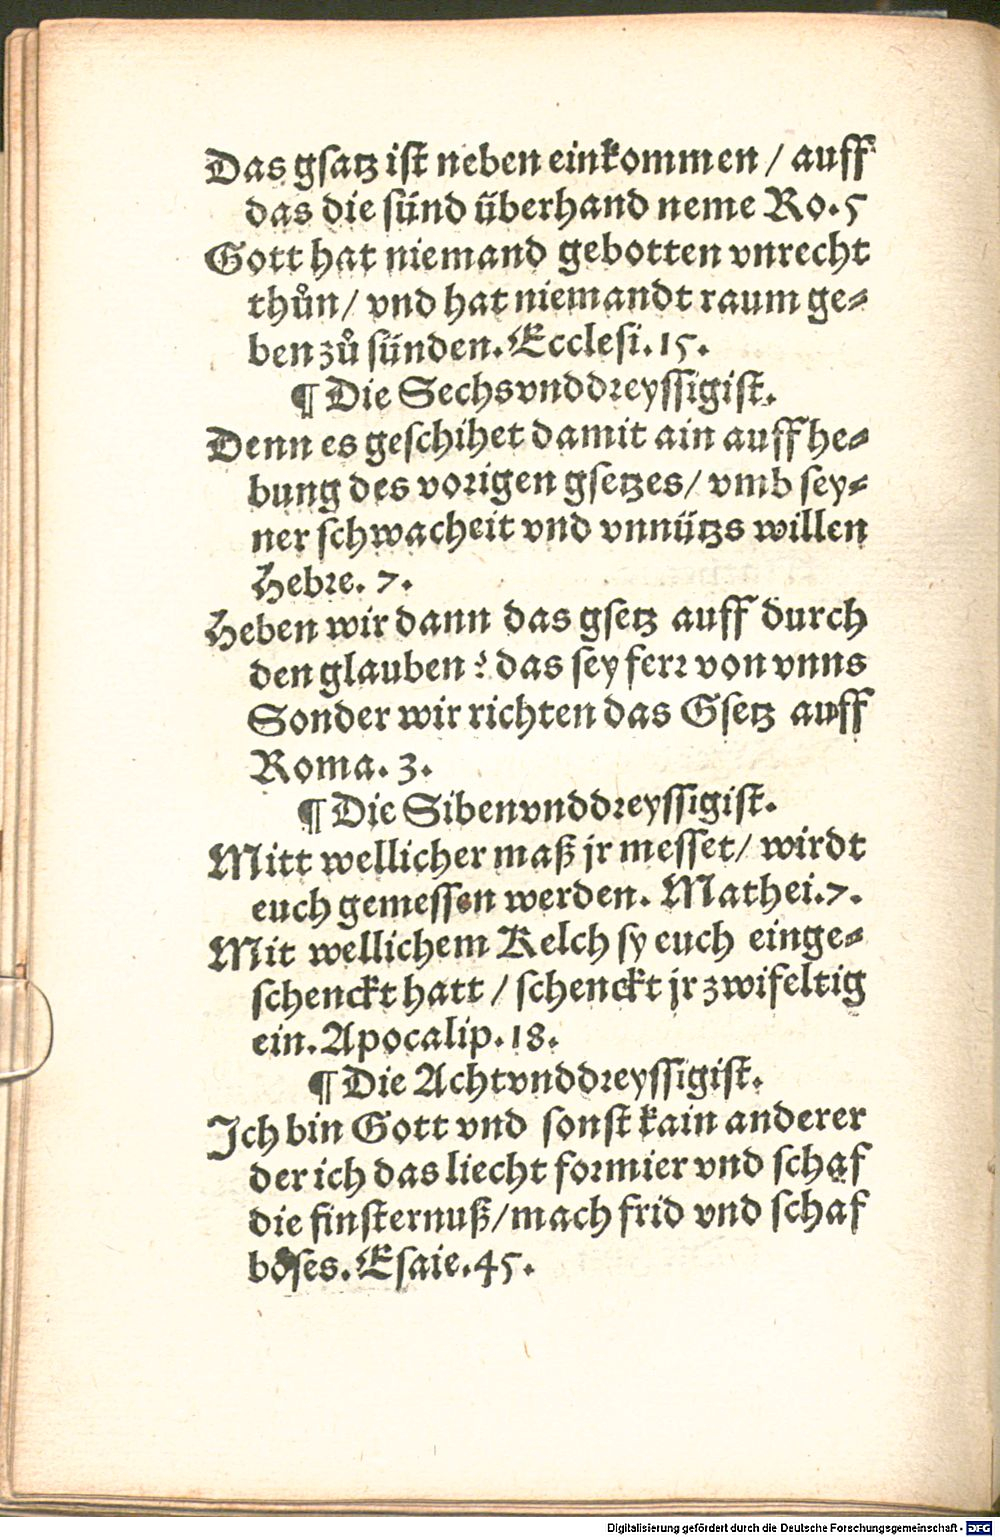 Das gsatz ist neben einkommen / auff
das die sünd überhand neme Ro. 5
Gott hat niemand gebotten vnrecht
thůn / vnd hat niemandt raum ge⸗
ben zů sünden. Ecclesi. 15.
¶ Die Sechsvnddreyssigist.
Denn es geschihet damit ain auffhe⸗
bung des vorigen gsetzes / vmb sey⸗
ner schwacheit vnd vnnützs willen
Hebre. 7.
Heben wir dann das gsetz auff durch
den glauben? das sey ferr von vnns
Sonder wir richten das Gsetz auff
Roma. 3.
¶ Die Sibenvnddreyssigist.
Mitt wellicher maß jr messet / wirdt
euch gemessen werden. Mathei. 7.
Mit wellichem Kelch sy euch einge⸗
schenckt hatt / schenckt jr zwifeltig
ein. Apocalip. 18.
¶ Die Achtvnddreyssigist.
Ich bin Gott vnd sonst kain anderer
der ich das liecht formier vnd schaf
die finsternuß / mach frid vnd schaf
böses. Esaie. 45.
Digitalisierung gefördert durch die Deutsche Forschungsgemeinschaft - DFG